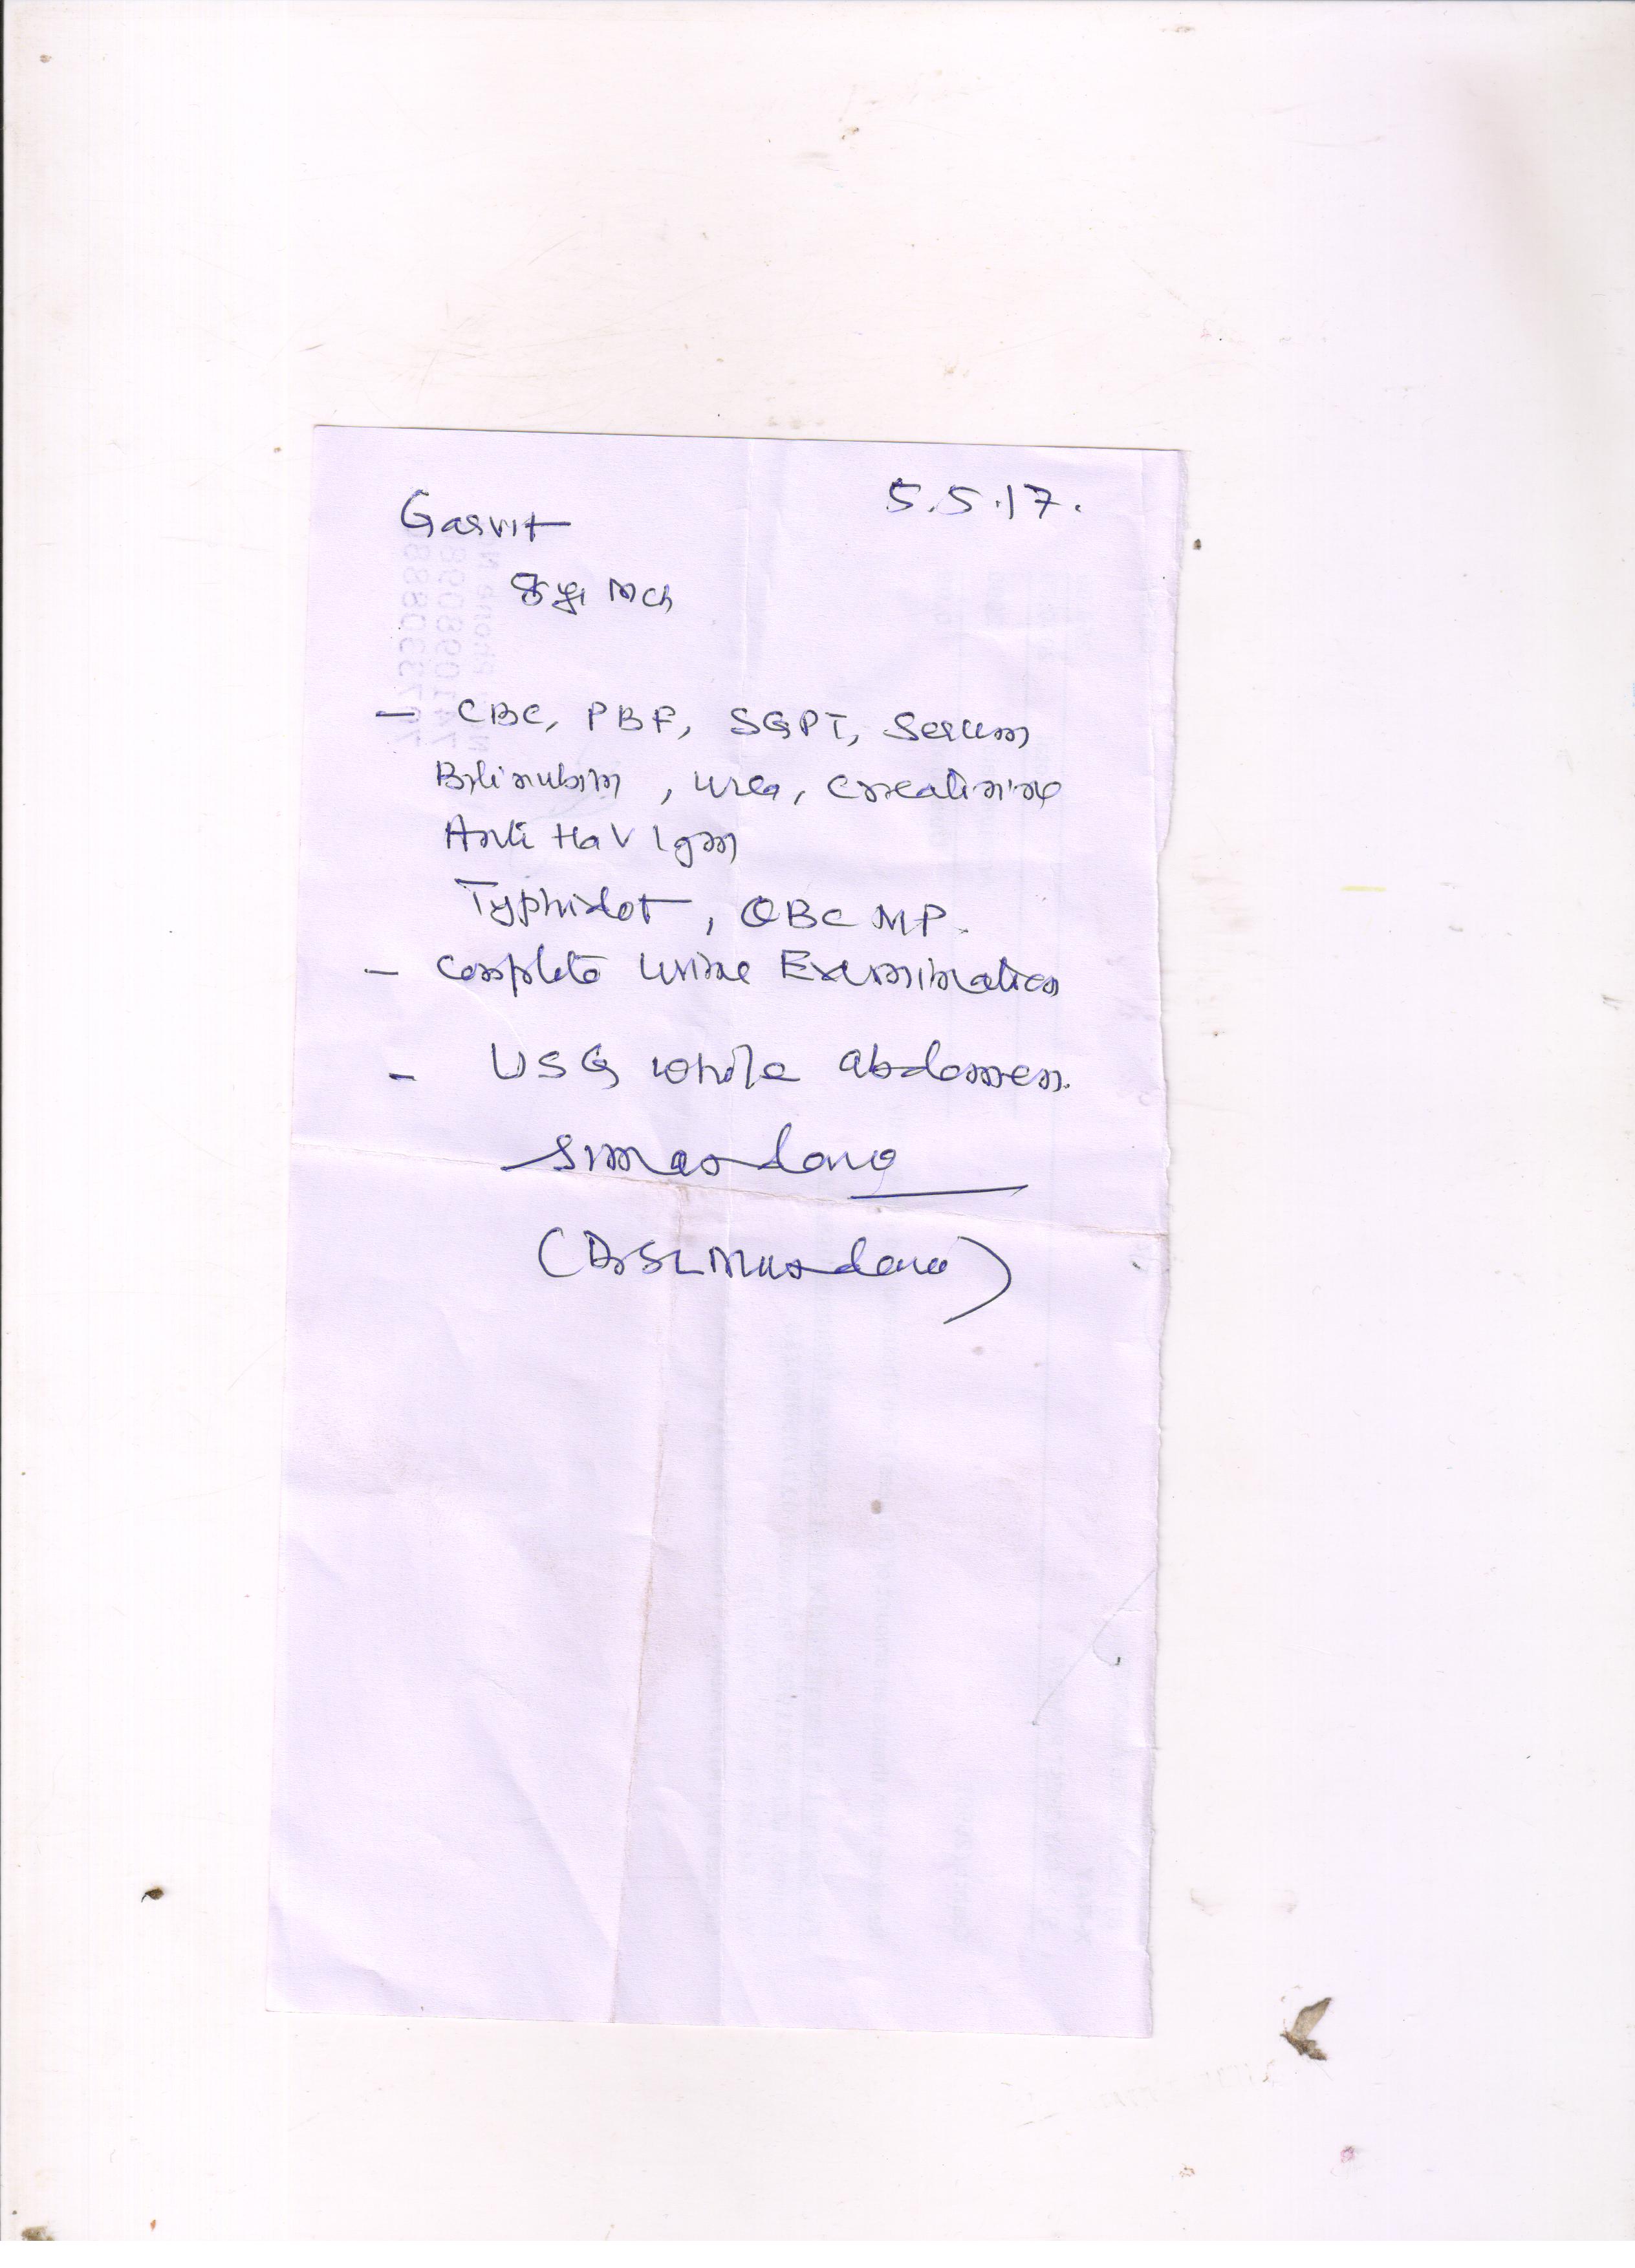 5.5.17.
Garvit
yr mch
- CBC, PBF, SGPT, Serum
Bilirubin, urea, creatinine
Anti HaV Igm
Typhidot, QBC MP.
- Complete Urine Examination
- USG whole abdomen.
(Dr SL Mandana)